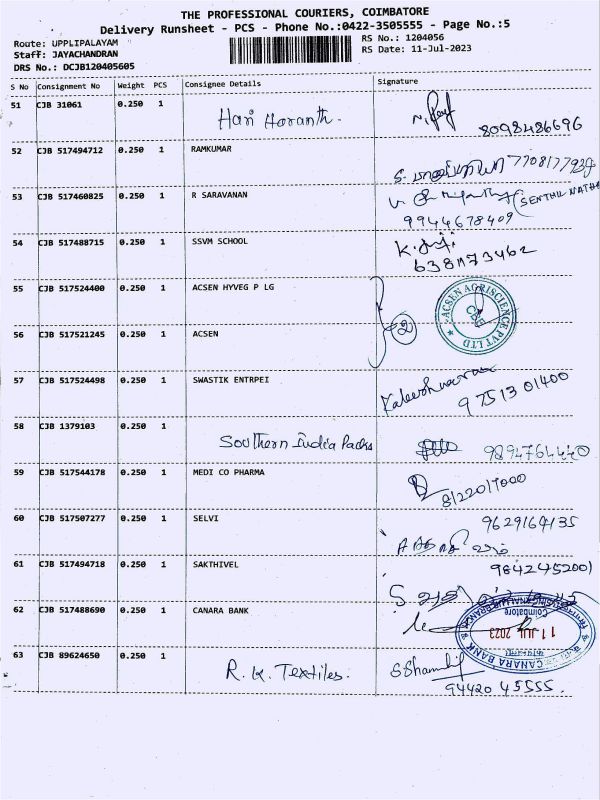 THE PROFESSIONAL COURIERS, COIMBATORE
Delivery Runsheet - PCS - Phone No.:0422-3505555 - Page No.:5
Route: UPPLIPALAYAM
RS No.: 1204056
Staff: JAYACHANDRAN
RS Date: 11-Jul-2023
DRS No.: DCJB120405605
S No Consignment No Weight PCS Consignee Details Signature
51 CJB 31061 0.250 1 Hari Haranth.
8098486696
52 CJB 517494712 0.250 1 RAMKUMAR
S.
53 CJB 517460825 0.250 1 R SARAVANAN
(SENTHIL NATHA
9944678409
54 CJB 517488715 0.250 1 SSVM SCHOOL
55 CJB 517524400 0.250 1 ACSEN HYVEG P LG
ACSEN AGRISCIENCE PVT LTD
CBE
2
56 CJB 517521245 0.250 1 ACSEN
57 CJB 517524498 0.250 1 SWASTIK ENTRPEI
Kaleeshwaran
97513 01400
58 CJB 1379103 0.250 1 Southern India Packs
9894764440
59 CJB 517544178 0.250 1 MEDI CO PHARMA
8122017000
60 CJB 517507277 0.250 1 SELVI
9629164135
61 CJB 517494718 0.250 1 SAKTHIVEL
9842452001
62 CJB 517488690 0.250 1 CANARA BANK
Coimbatore
11 JUL 2023
CANARA BANK
63 CJB 89624650 0.250 1 R.K. Textiles.
94420 45555.